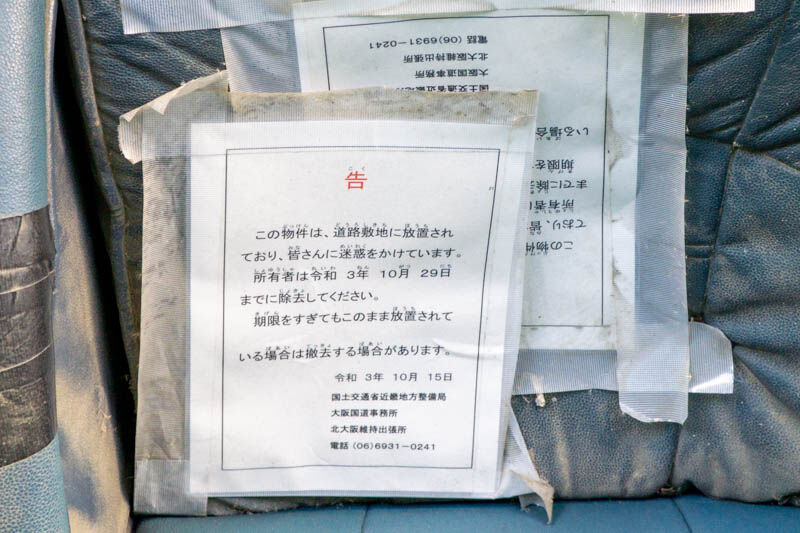 告
この物件は、道路敷地に放置され
ており、皆さんに迷惑をかけています。
所有者は令和 3年 10月 29日
までに除去してください。
期限をすぎてもこのまま放置されて
いる場合は撤去する場合があります。
令和 3年 10月 15日
国土交通省近畿地方整備局
大阪国道事務所
北大阪維持出張所
電話 (06)6931-0241
この物件
ており、皆
所有者は
までに除
期限を
いる場合
国土交通省近畿
大阪国道事務所
北大阪維持出張所
電話 (06)6931-0241